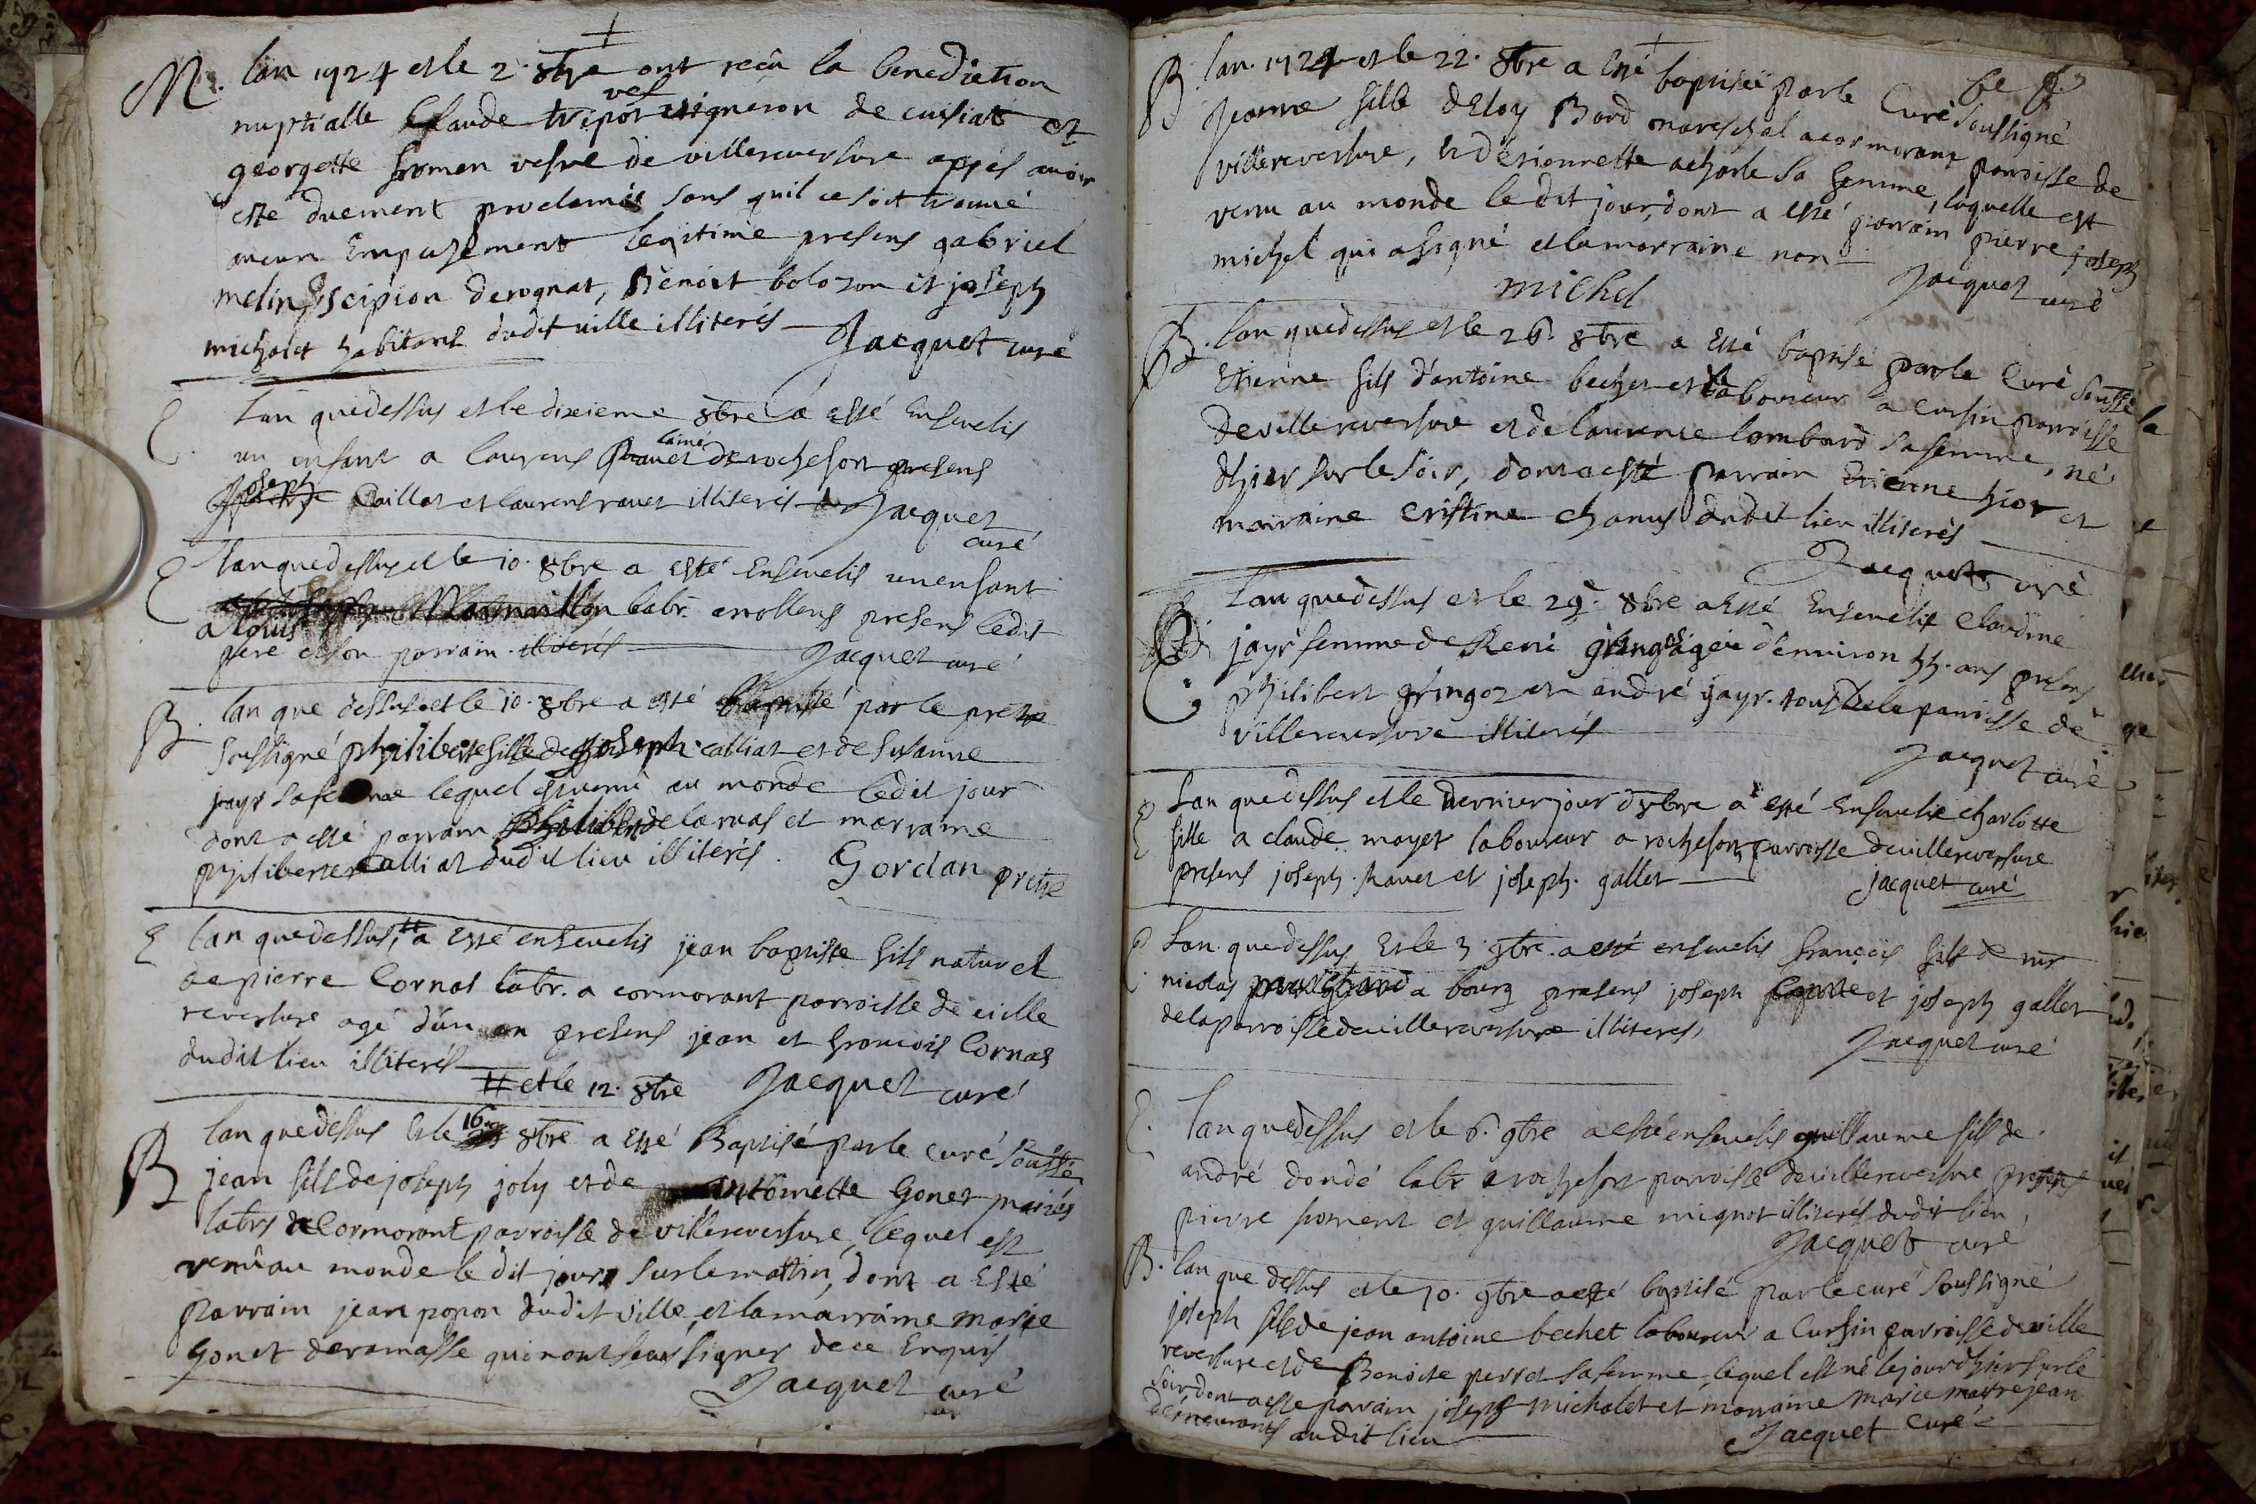 M. lan 1724 et le 2. 8bre ont recû la benediction
nuptialle Claude tripoz vef vigneron de cuisiat et
georgette fromen vesve de villereversure appés avoir
esté duement proclamés sans quil ce soit trouvé
aucun Empechement legitime presens gabriel
melin, scipion derognat, Benoit bolozon et joseph
michalet habitans dudit ville illiterés
Jacquet curé
E. Lan que dessus et le dixieme 8bre a esté Ensevelis
un enfant a laurens Ravet lainé de rochefort presens
joseph Caillat et laurens ravet illiterés Jacquet
curé
E lan que dessus et le 10. 8bre a esté Ensevelis un enfant
a louis Marmillon labr. a rollens presens ledit
pere et son parrain illiterés Jacquet curé
B. lan que dessus et le 10. 8bre a esté Baptisé par le pretre
soussigné philiberte fille de joseph calliat et de susanne
jayr sa femme lequel est venu au monde ledit jour
dont a esté parrain philibert delarnas et marraine
philiberte calliat dudit lieu illiterés. Gordan pretre
E lan que dessus, # a esté ensevelis jean baptiste fils naturel
de pierre Cornas labr. a cormorant parroisse de ville
reversure agé d'un an presens jean et francois Cornas
dudit lieu illiterés
# et le 12. 8bre Jacquet curé
B lan que dessus Et le 16 8bre a Esté Baptisé par le curé soussé
jean fils de joseph joly et de antoinette Gonet mariés
labrs de Cormorant parroisse de villereversure, lequel est
venu au monde le dit jour sur le mattin, dont a Esté
parrain jean popon dudit ville, et la marraine marie
Gonet de ramasse qui n'ont sceu signer de ce Enquis
Jacquet curé
B. lan. 1724 et le 22. 8bre a Esté baptiseé par le Curé soussigné
Jeanne fille d'Eloy Bard mareschal a cormorant parroisse de
villereversure, et d'esionnette acharle sa femme, laquelle est
venu au monde le dit jour, dont a esté parrain pierre joseph
michel qui a signé et la marraine non
michel Jacquet curé
B. lan que dessus et le 26. 8bre a Esté baptisé par le Curé soussé
Etienne fils d'antoine bechet laboureur a Cursin parroisse
de villereversure et de laurence lombard sa femme, né
d'hier sur le soir, dont a esté parrain Etienne hior et
marraine Cristine chanus dudit lieu illiterés
Jacquet curé
E. lan que dessus et le 29. 8bre a Esté Ensevelie Claudine
jayr femme de René gringoz ageé d'environ 55. ans presens
philibert gringoz et andré jayr. tous de la parroisse de
villereversure illiterés
Jacquet curé
E Lan que dessus et le dernier jour d'8bre a esté Ensevelie charlotte
fille a claude mayet laboureur a rochefort parroisse de villereversure
presens joseph. Ravet et joseph. gallet Jacquet curé
E. Lan que dessus Et le 3. 9bre. a esté ensevelis françois fils de mr
nicolas a bourg presens joseph et joseph gallet
de la parroisse de villereversure illiterés,
Jacquet curé
E. Lan que dessus et le 6. 9bre a esté ensevelis guillaume fils de
andré dondé labr a rochefort parroisse de villereversure presens
pierre froment et guillaume mignot illiterés dudit lieu
Jacquet curé
B. lan que dessus et le 10. 9bre a esté baptisé par le curé soussigné
joseph fils de jean antoine bechet laboureur a Cursin parroisse de ville
reversure et de Benoite perret sa femme, lequel est né le jour d'hier sur le
soir, dont a esté parrain joseph michalet et marraine marie marrejean
demeurants audit lieu Jacquet Curé